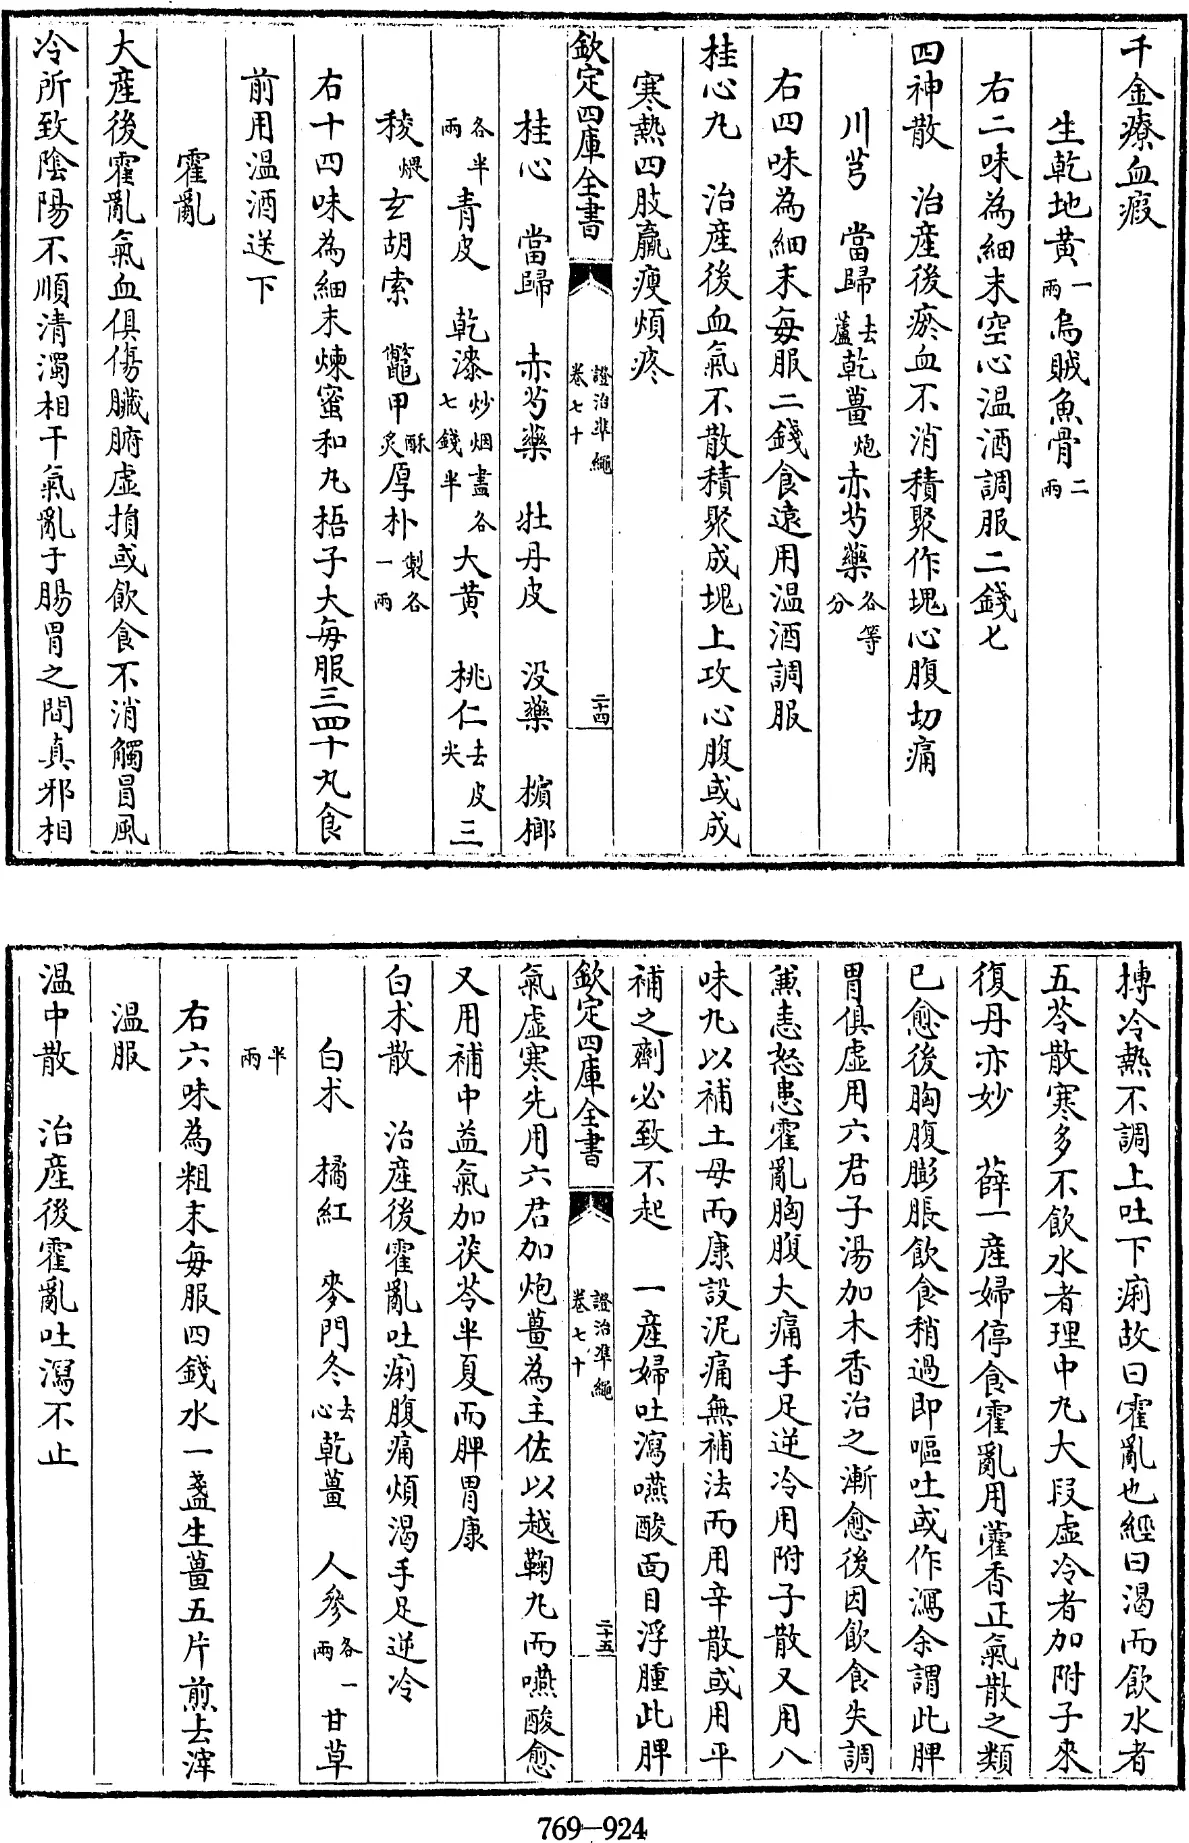 千金療血瘕
生乾地黄一兩烏賊魚骨二兩
右二味為細末空心温酒調服二錢匕
四神散　治産後瘀血不消積聚作塊心腹切痛
川芎　當歸去蘆乾薑炮赤芍藥各等分
右四味為細末毎服二錢食遠用温酒調服
桂心丸　治産後血氣不散積聚成塊上攻心腹或成
寒熱四肢羸瘦煩疼
欽定四庫全書　證治準繩卷七十　二十四
桂心　當歸　赤芍藥　牡丹皮　没藥　檳榔
各半兩青皮　乾漆炒烟盡各七錢半大黄　桃仁去皮尖三
稜煨玄胡索　鼈甲酥炙厚朴製各一兩
右十四味為細末煉蜜和丸梧子大毎服三四十丸食
前用温酒送下
霍亂
大産後霍亂氣血俱傷臟腑虚損或飲食不消觸冒風
冷所致陰陽不順清濁相干氣亂于腸胃之間真邪相
搏冷熱不調上吐下痢故曰霍亂也經曰渴而飲水者
五苓散寒多不飲水者理中丸大段虚冷者加附子來
復丹亦妙　薛一産婦停食霍亂用藿香正氣散之類
已愈後胸腹膨脹飲食稍過即嘔吐或作瀉余謂此脾
胃俱虚用六君子湯加木香治之漸愈後因飲食失調
兼恚怒患霍亂胸腹大痛手足逆冷用附子散又用八
味丸以補土母而康設泥痛無補法而用辛散或用平
補之劑必致不起　一産婦吐瀉嚥酸面目浮腫此脾
欽定四庫全書　證治準繩卷七十　二十五
氣虚寒先用六君加炮薑為主佐以越鞠丸而嚥酸愈
又用補中益氣加茯苓半夏而脾胃康
白术散　治産後霍亂吐痢腹痛煩渴手足逆冷
白术　橘紅　麥門冬去心乾薑　人參各一兩甘草
半兩
右六味為粗末毎服四錢水一盞生薑五片煎去滓
温服
温中散　治産後霍亂吐瀉不止
769—924